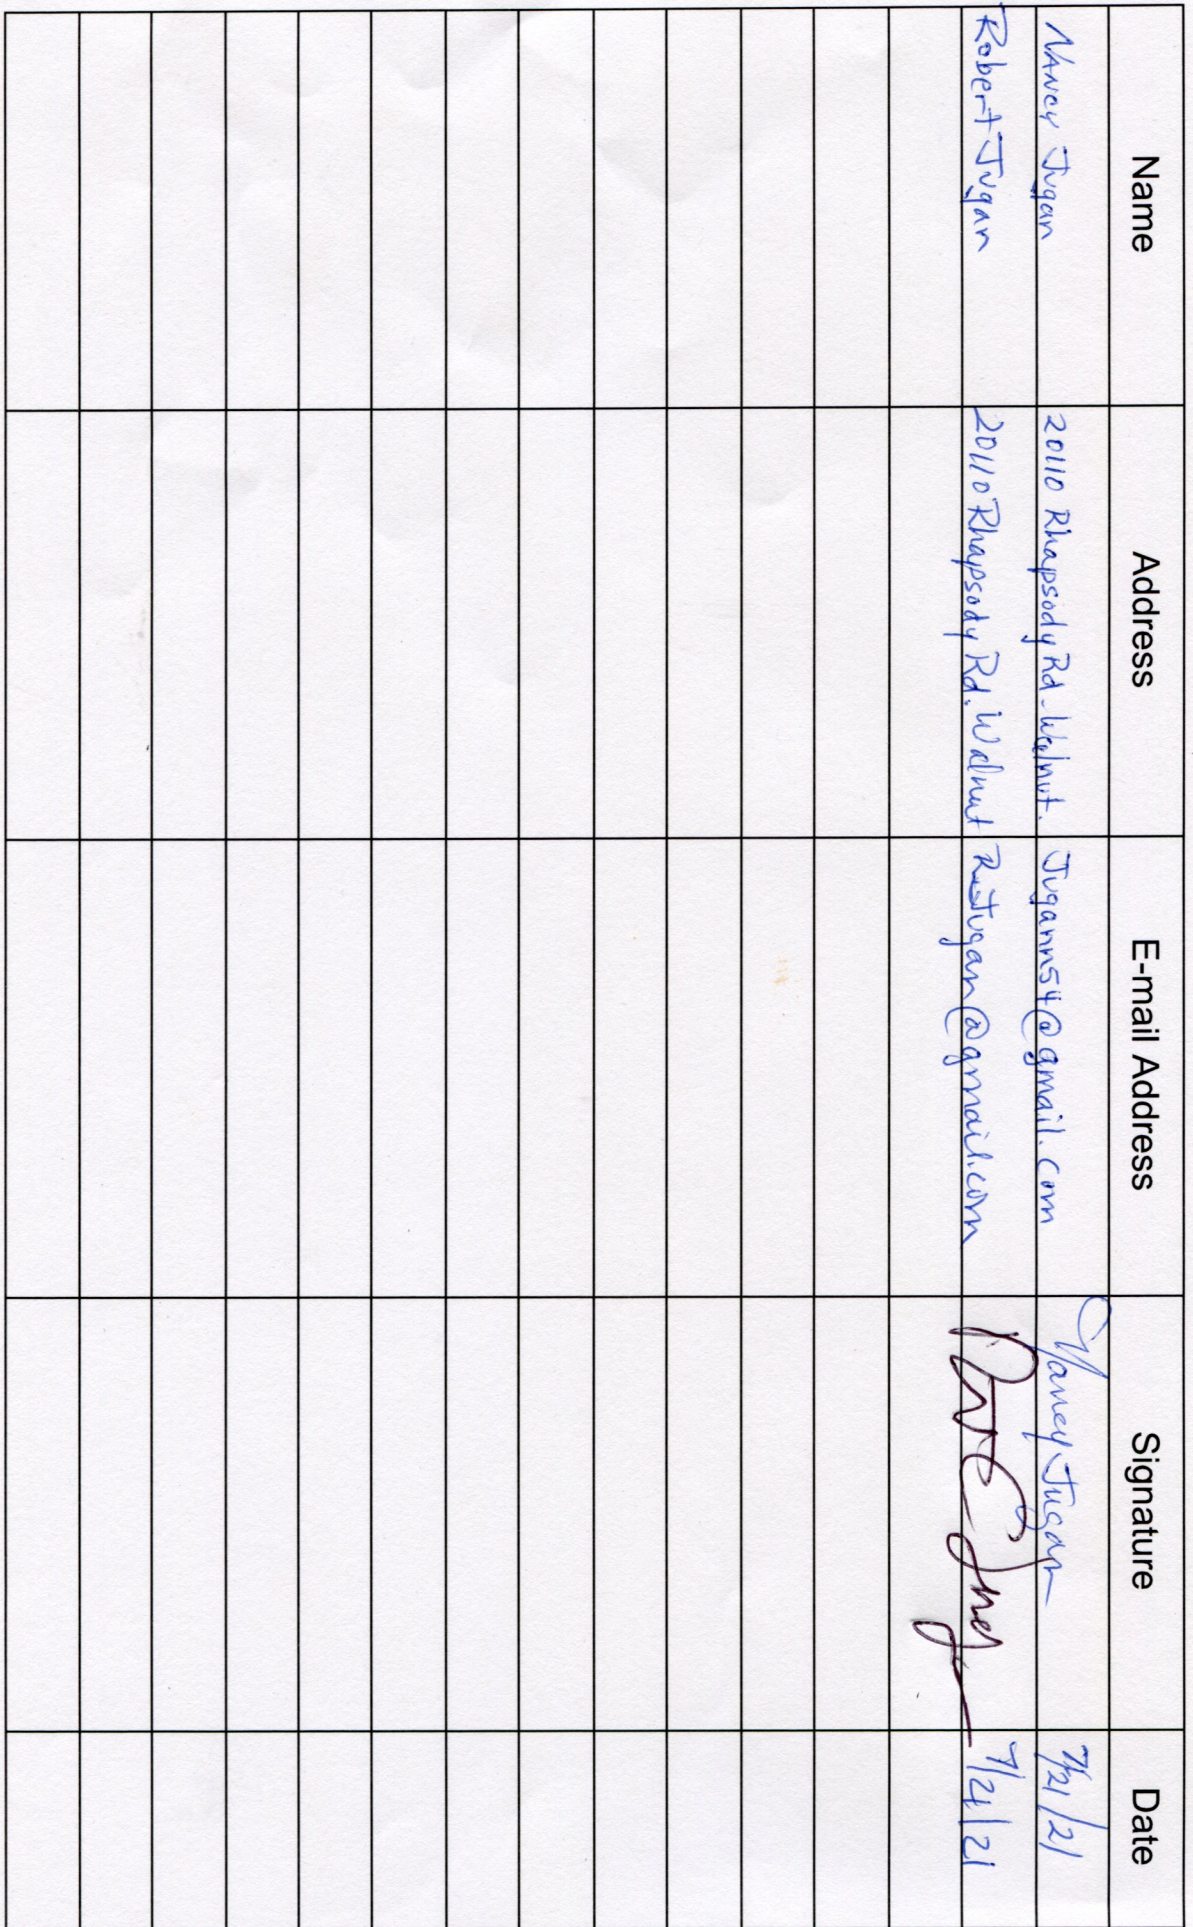 Name Address E-mail Address Signature Date
Nancy Jugan 20110 Rhapsody Rd. Walnut. Jugann54@gmail.com Nancy Jugan 7/21/21
Robert Jugan 20110 Rhapsody Rd. Walnut Jugan@gmail.com 7/21/21